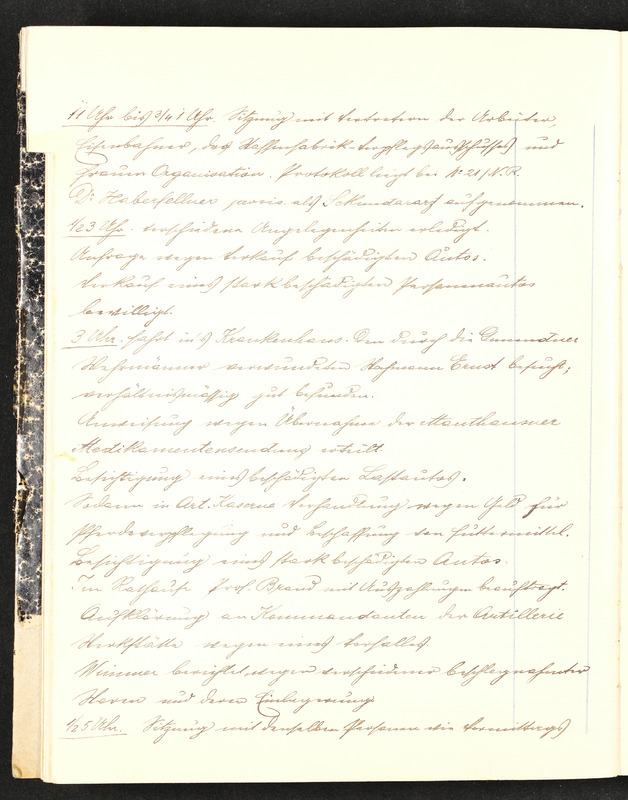 11 Uhr bis 3/4 1 Uhr. Sitzung mit Vertretern der Arbeiter,
Eisenbahner, des Waffenfabrik-Verpflegsausschusses und
Frauen Organisation. Protokoll liegt bei No 21/N.R.
Dr Haberfellner provis. als Sekundararzt aufgenommen.
1/23 Uhr. Verschiedene Angelegenheiten erledigt.
Anfrage wegen Verkauf beschädigten Autos.
Verkauf eines stark beschädigten Personenautos
bewilligt.
3 Uhr. Fahrt in's Krankenhaus. Den durch die Gmundner
Wehrmänner verwundeten Hofmann Ernst besucht;
verhältnismässig gut befunden.
Anweisung wegen Übernahme der Mauthausner
Medikamentensendung erteilt.
Besichtigung eines beschädigten Lastautos.
Sodann in Art. Kaserne Verhandlung wegen Geld für
Pferdeverpflegung und Beschaffung von Futtermittel.
Besichtigung eines stark beschädigten Autos.
Im Rathause Prof. Brand mit Auszahlungen beauftragt.
Aufklärung an Kommandanten der Artillerie
Werkstätte wegen eines Vorfalles.
Wimmer berichtet wegen verschiedener beschlagnahmter
Waren und deren Einlagerung.
1/25 Uhr. Sitzung mit denselben Personen wie Vormittags